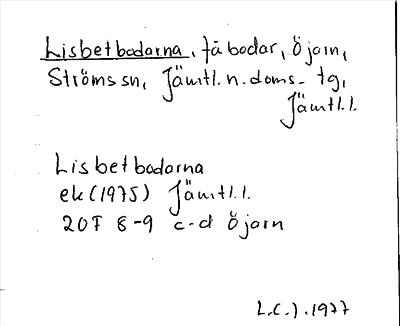 Lisbetbodarna, fäbodar, Öjarn,
Ströms sn, Jämtl. n. doms. tg,
Jämtl. l.
Lisbetbodarna
ek (1975) Jämtl. l.
20F 8-9 c-d Öjarn
L.C.J. 1977